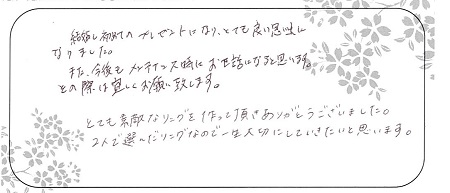 結婚し初めてのプレゼントになり、とても良い思い出に
なりました。
また、今後もメンテナンス時にお世話になると思います。
その際は宜しくお願い致します。
とても素敵なリングを作って頂きありがとうございました。
2人で選んだリングなので一生大切にしていきたいと思います。